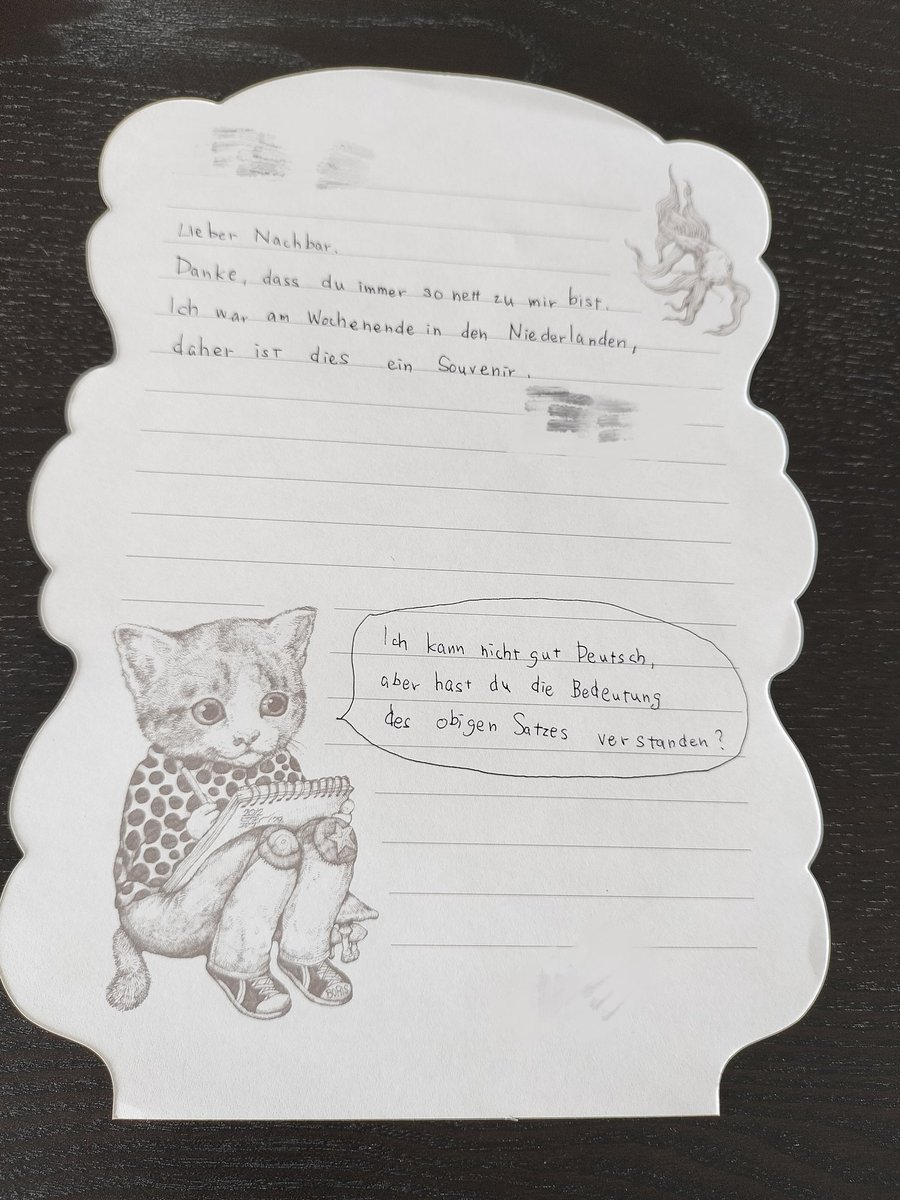 Lieber Nachbar.
Danke, dass du immer so nett zu mir bist.
Ich war am Wochenende in den Niederlanden,
daher ist dies ein Souvenir.
Ich kann nicht gut Deutsch,
aber hast du die Bedeutung
des obigen Satzes verstanden?